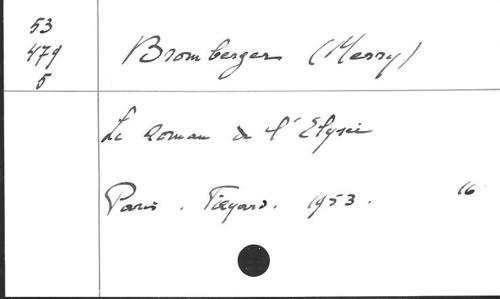 53
479
5
Bromberger (Merry)
Le Roman de l'Elysée
Paris. Fayard. 1953. 16